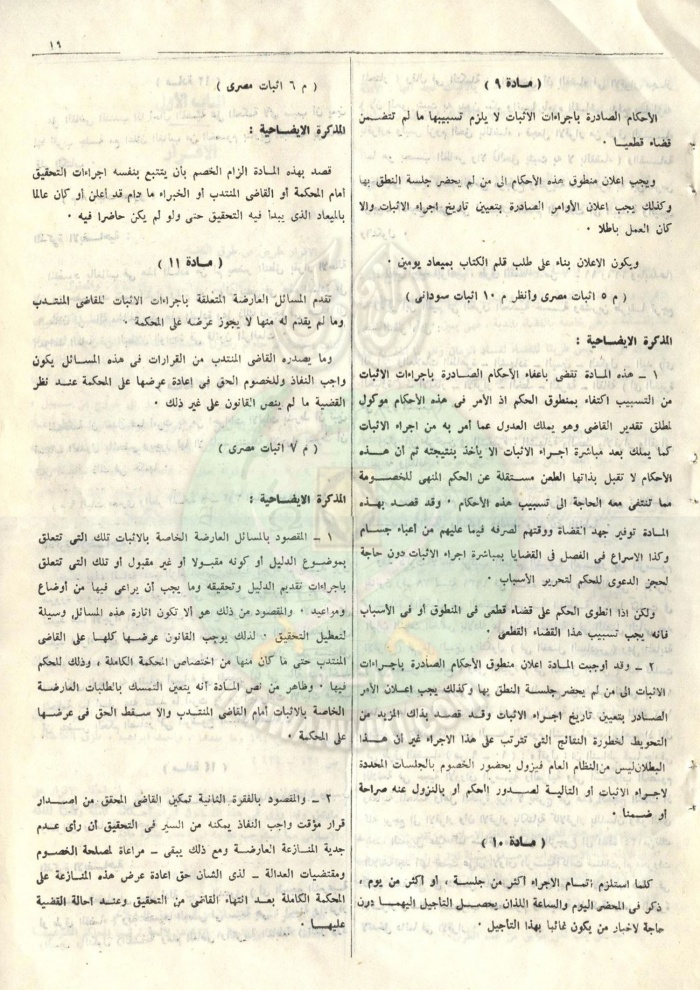 ١٦
( مادة ٩ )
الأحكام الصادرة باجراءات الاثبات لا يلزم تسبيبها ما لم تتضمن
قضاء قطعيا ٠
ويجب إعلان منطوق هذه الأحكام الى من لم يحضر جلسة النطق بها
وكذلك يجب إعلان الأوامر الصادرة بتعيين تاريخ اجراء الاثبات والا
كان العمل باطلا ٠
ويكون الاعلان بناء على طلب قلم الكتاب بميعاد يومين ٠
( م ٥ اثبات مصرى وأنظر م ١٠ اثبات سودانى )
المذكرة الايضاحية :
١ ــ هذه المادة تقضى باعفاء الأحكام الصادرة باجراءات الاثبات
من التسبيب اكتفاء بمنطوق الحكم اذ الأمر فى هذه الأحكام موكول
لمطلق تقدير القاضى وهو يملك العدول عما أمر به من اجراء الاثبات
كما يملك بعد مباشرة اجراء الاثبات الا يأخذ بنتيجته ثم أن هذه
الأحكام لا تقبل بذاتها الطعن مستقلة عن الحكم المنهى للخصومة
مما تنتفى معه الحاجة الى تسبيب هذه الأحكام ٠ وقد قصد بهذه
المادة توفير جهد القضاة ووقتهم لصرفه فيما عليهم من أعباء جسام
وكذا الاسراع فى الفصل فى القضايا بمباشرة اجراء الاثبات دون حاجة
لحجز الدعوى للحكم لتحرير الأسباب ٠
ولكن اذا انطوى الحكم على قضاء قطعى فى المنطوق أو فى الأسباب
فانه يجب تسبيب هذا القضاء القطعى ٠
٢ ــ وقد أوجبت المادة اعلان منطوق الأحكام الصادرة باجراءات
الاثبات الى من لم يحضر جلسة النطق بها وكذلك يجب اعلان الأمر
الصادر بتعيين تاريخ اجراء الاثبات وقد قصد بذاك المزيد من
التحويط لخطورة النتائج التى تترتب على هذا الاجراء غير أن هذا
البطلان ليس من النظام العام فيزول بحضور الخصوم بالجلسات المحددة
لاجراء الاثبات أو التالية لصدور الحكم أو بالنزول عنه صراحة
أو ضمنا ٠
( مادة ١٠ )
كلما استلزم اتمام الاجراء أكثر من جلسة ، أو أكثر من يوم ،
ذكر فى المحضر اليوم والساعة اللذان يحصل التأجيل اليهما دون
حاجة لاخبار من يكون غائبا بهذا التأجيل ٠
( م ٦ اثبات مصرى )
المذكرة الايضاحية :
قصد بهذه المادة الزام الخصم بأن يتتبع بنفسه اجراءات التحقيق
أمام المحكمة أو القاضى المنتدب أو الخبراء ما دام قد أعلن أو كان عالما
بالميعاد الذى يبدأ فيه التحقيق حتى ولو لم يكن حاضرا فيه ٠
( مادة ١١ )
تقدم المسائل العارضة المتعلقة باجراءات الاثبات للقاضى المنتدب
وما لم يقدم له منها لا يجوز عرضه على المحكمة ٠
وما يصدره القاضى المنتدب من القرارات فى هذه المسائل يكون
واجب النفاذ وللخصوم الحق فى إعادة عرضها على المحكمة عند نظر
القضية ما لم ينص القانون على غير ذلك ٠
( م ٧ اثبات مصرى )
المذكرة الايضاحية :
١ ــ المقصود بالمسائل العارضة الخاصة بالاثبات تلك التى تتعلق
بموضوع الدليل أو كونه مقبولا أو غير مقبول أو تلك التى تتعلق
باجراءات تقديم الدليل وتحقيقه وما يجب أن يراعى فيها من أوضاع
ومواعيد ٠ والمقصود من ذلك هو ألا تكون اثارة هذه المسائل وسيلة
لتعطيل التحقيق ٠ لذلك يوجب القانون عرضها كلها على القاضى
المنتدب حتى ما كان منها من اختصاص المحكمة الكاملة ، وذلك للحكم
فيها ٠ وظاهر من نص المادة أنه يتعين التمسك بالطلبات العارضة
الخاصة بالاثبات أمام القاضى المنتدب والا سقط الحق فى عرضها
على المحكمة ٠
٢ ــ والمقصود بالفقرة الثانية تمكين القاضى المحقق من اصدار
قرار مؤقت واجب النفاذ يمكنه من السير فى التحقيق أن رأى عدم
جدية المنازعة العارضة ومع ذلك يبقى ــ مراعاة لمصلحة الخصوم
ومقتضيات العدالة ــ لذى الشان حق اعادة عرض هذه المنازعة على
المحكمة الكاملة بعد انتهاء القاضى من التحقيق وعند احالة القضية
عليها ٠